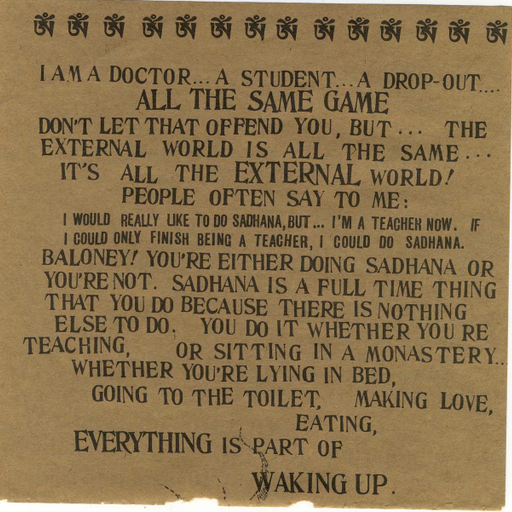 ༀ ༀ ༀ ༀ ༀ ༀ ༀ ༀ ༀ ༀ ༀ ༀ ༀ
I AM A DOCTOR... A STUDENT... A DROP-OUT....
ALL THE SAME GAME
DON'T LET THAT OFFEND YOU, BUT... THE
EXTERNAL WORLD IS ALL THE SAME...
IT'S ALL THE EXTERNAL WORLD!
PEOPLE OFTEN SAY TO ME:
I WOULD REALLY LIKE TO DO SADHANA, BUT... I'M A TEACHER NOW. IF
I COULD ONLY FINISH BEING A TEACHER, I COULD DO SADHANA.
BALONEY! YOU'RE EITHER DOING SADHANA OR
YOU'RE NOT. SADHANA IS A FULL TIME THING
THAT YOU DO BECAUSE THERE IS NOTHING
ELSE TO DO. YOU DO IT WHETHER YOU'RE
TEACHING, OR SITTING IN A MONASTERY...
WHETHER YOU'RE LYING IN BED,
GOING TO THE TOILET, MAKING LOVE,
EATING,
EVERYTHING IS PART OF
WAKING UP.